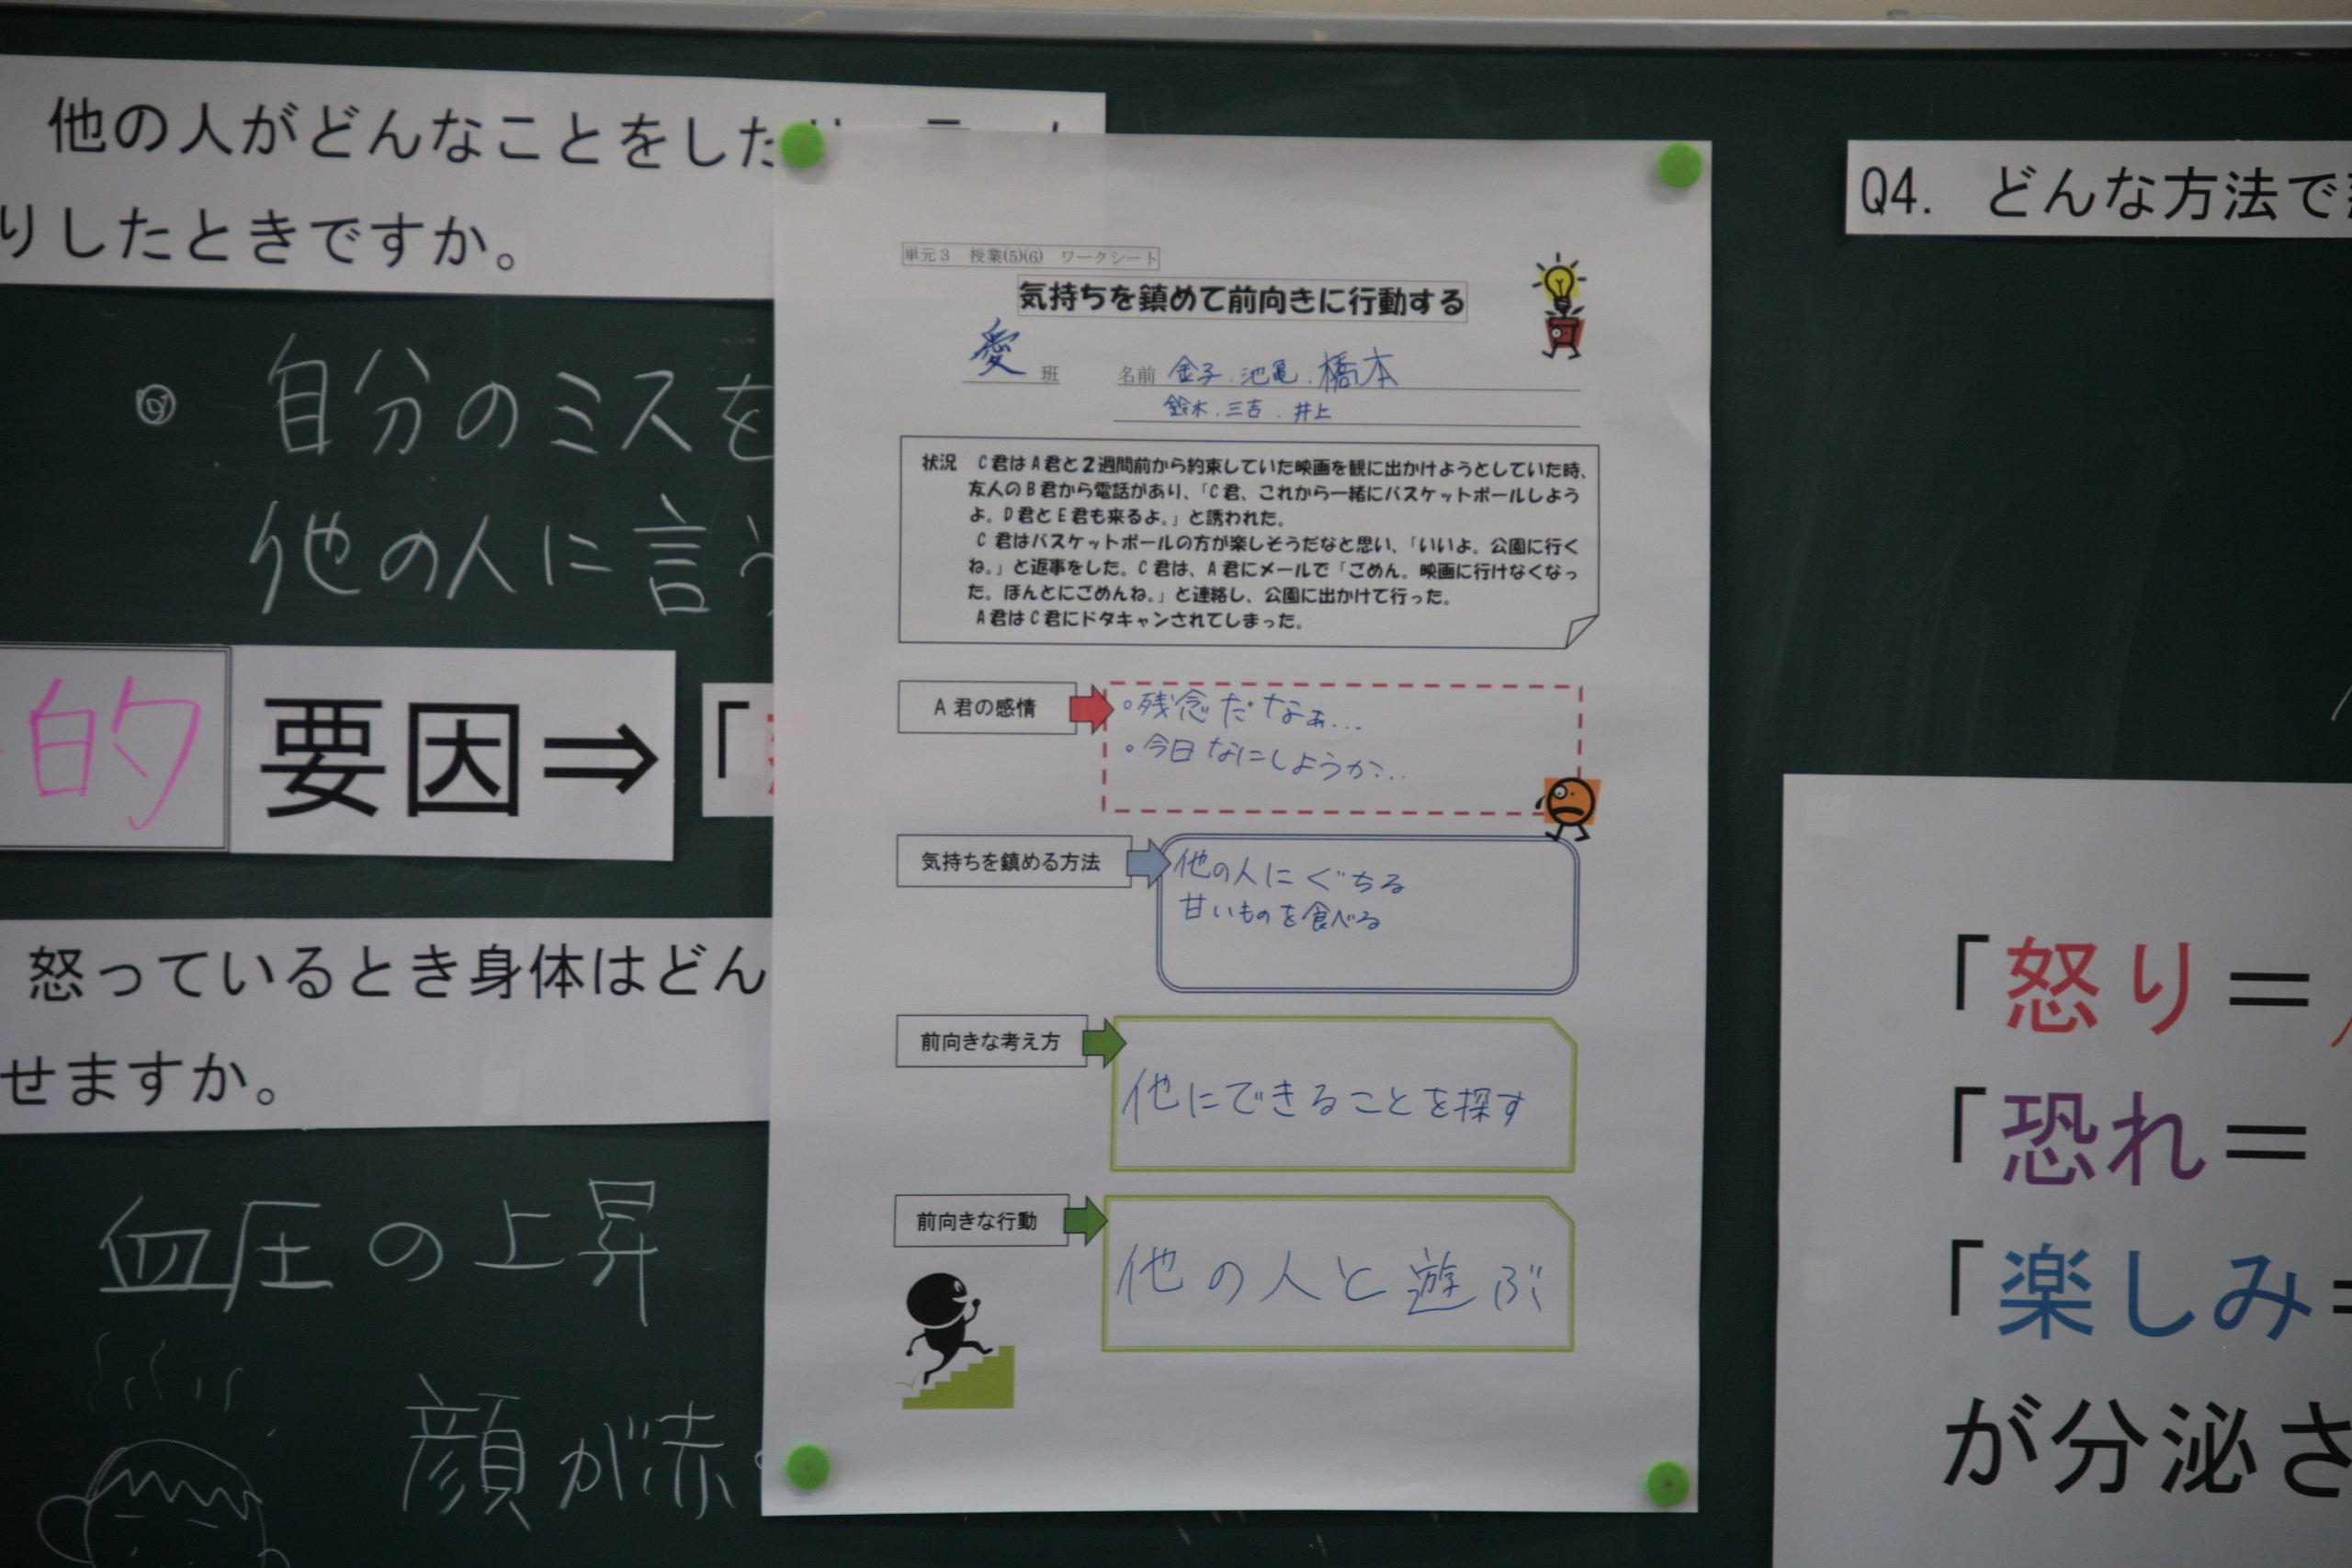 他の人がどんなことをした
りしたときですか。
自分のミスを
他の人に言う
的 要因⇒「
怒っているとき身体はどん
せますか。
血圧の上昇
顔が赤
単元3 授業(5)(6) ワークシート
気持ちを鎮めて前向きに行動する
愛 班 名前 金子.池亀.橋本
鈴木.三吉.井上
状況 C君はA君と2週間前から約束していた映画を観に出かけようとしていた時、
友人のB君から電話があり、「C君、これから一緒にバスケットボールしよう
よ。D君とE君も来るよ。」と誘われた。
C君はバスケットボールの方が楽しそうだなと思い、「いいよ。公園に行く
ね。」と返事をした。C君は、A君にメールで「ごめん。映画に行けなくなっ
た。ほんとにごめんね。」と連絡し、公園に出かけて行った。
A君はC君にドタキャンされてしまった。
A君の感情
。残念だなぁ...
。今日なにしようか...
気持ちを鎮める方法
他の人にぐちる
甘いものを食べる
前向きな考え方
他にできることを探す
前向きな行動
他の人と遊ぶ
Q4. どんな方法で
「怒り=
「恐れ=
「楽しみ=
が分泌さ